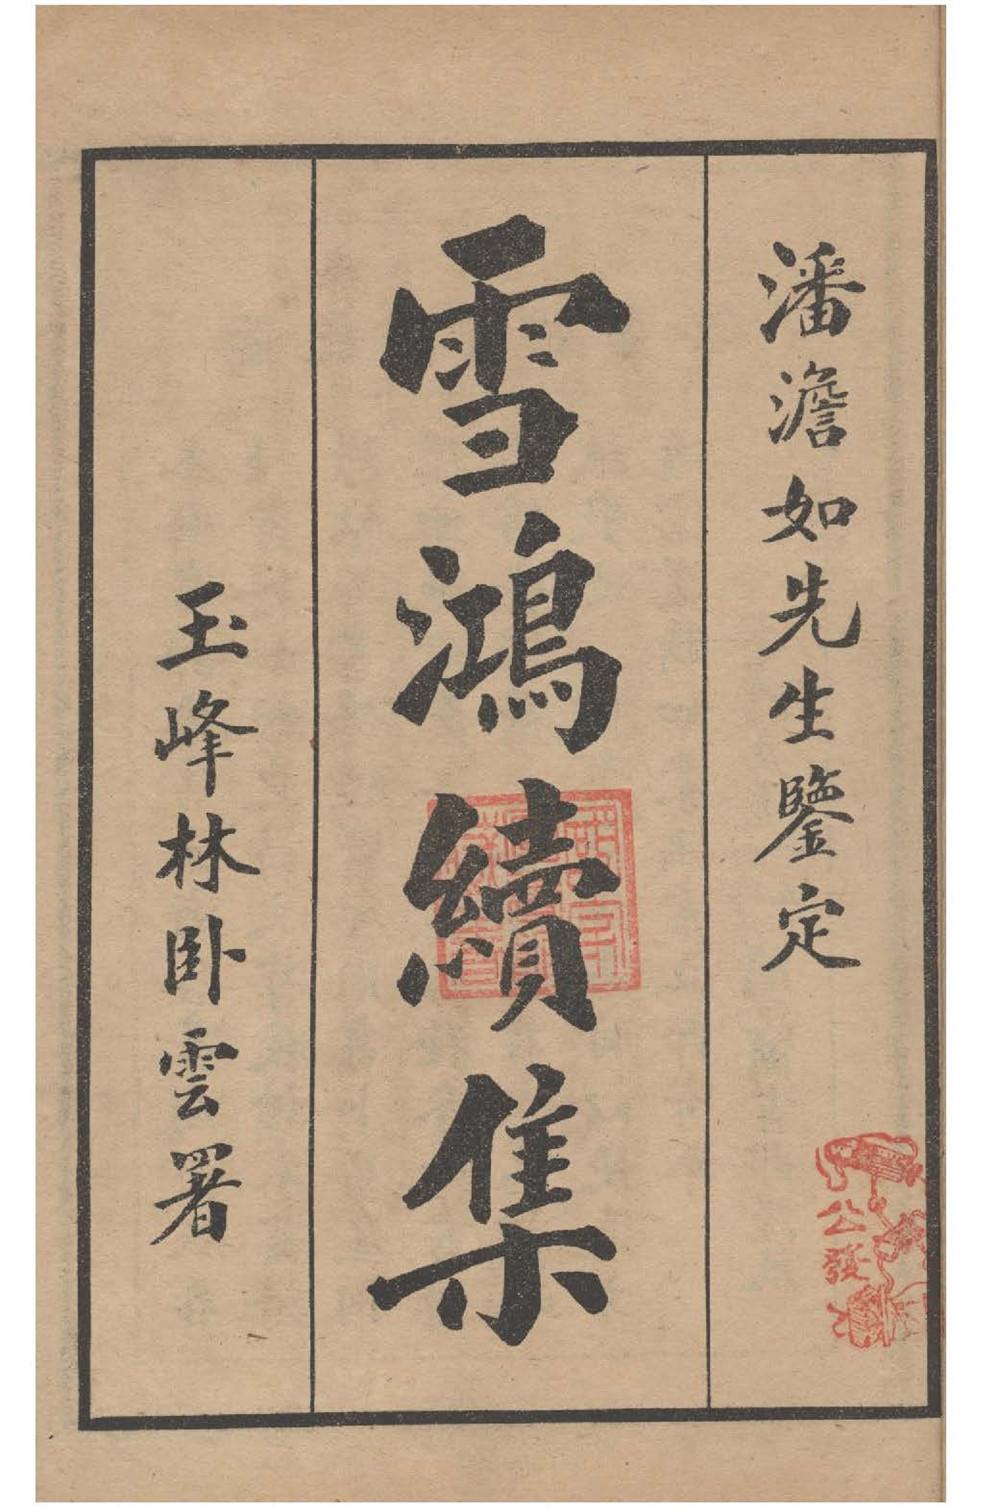 潘澹如先生鑒定
雪鴻續集
玉峰林卧雲署
公發